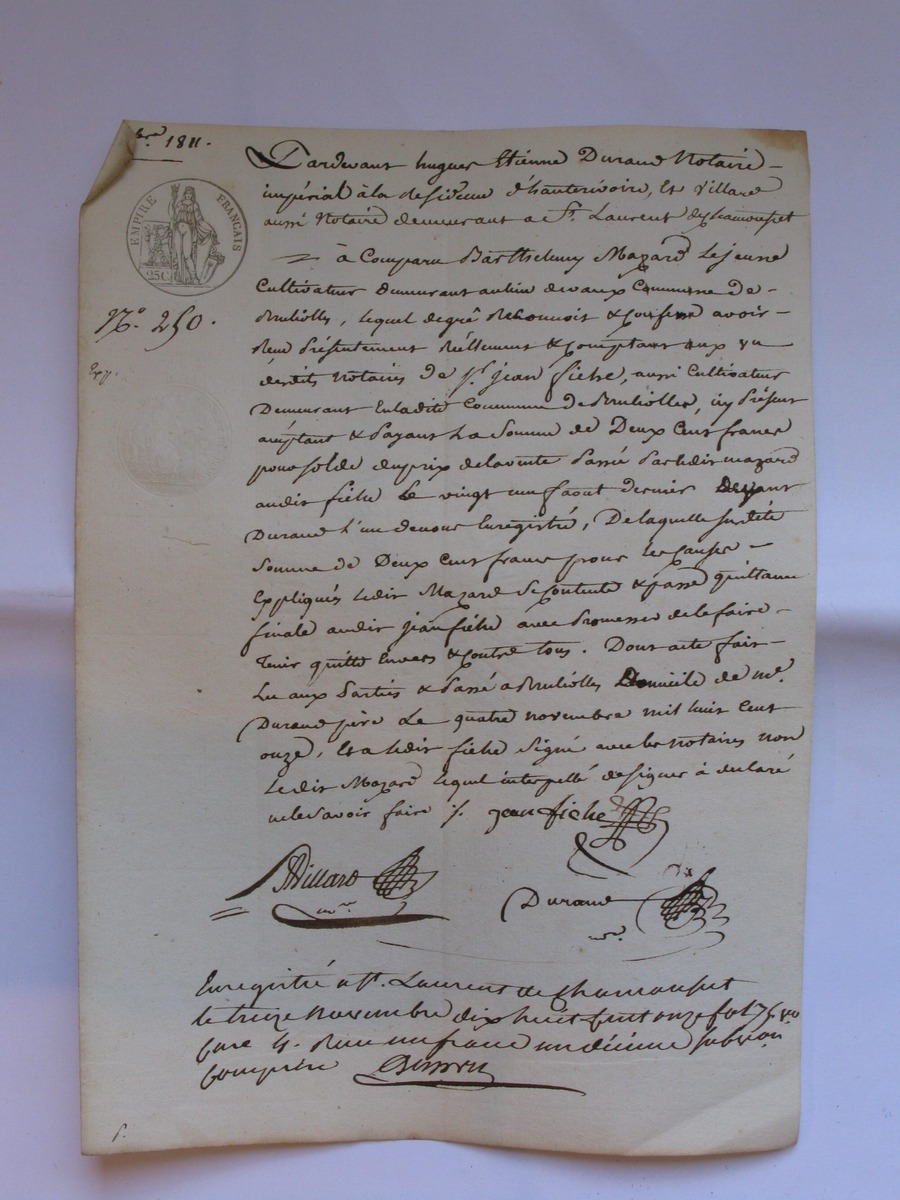 bre 1811.
EMPIRE FRANÇAIS
25C.
N.o 250.
Pardevant hugues Etienne Durand Notaire
impérial à la residence d'hauterivoire, et Villard
aussi Notaire demeurant a St. Laurent de chamousset
à Comparu Barthelemy Mazard Le jeune
Cultivateur demeurant au lieu de vaux Commune de
Brulliolles, lequel de gré Reconnoit & confesse avoir
Reçu Présentement Réellement & comptant aux vu
desdits notaires de Sr. jean fiche, aussi Cultivateur
Demeurant En ladite Commune de Brulliolles, icy Présent
acceptant & Payant La Somme de Deux Cent francs
pour solde du prix de la vente Passé Par ledit mazard
audit fiche Le vingt un aout dernier Devant
Durand L'un de nous Enregistré, De laquelle susdite
Somme de Deux Cent francs pour les causes
Expliqués Ledit Mazard Se contente & passe quittance
finale audit jean fiche avec Promesse de le faire
Tenir quitte Envers & Contre tous. Dont acte fait
Lu aux Parties & Passé a Brulliolles Domicile de me.
Durand père Le quatre novembre mil huit Cent
onze, Et a ledit fiche signé avec les notaires non
Ledit Mazard lequel interpellé de signer à declaré
ne le savoir faire ./. jean fiche
Villard
nre
Durand
nre.
Enregistré a St. Laurent de Chamousset
le treize novembre dix huit cent onze fol. 75 vo
case 4. Reçu un franc un décime subvon
Comprise